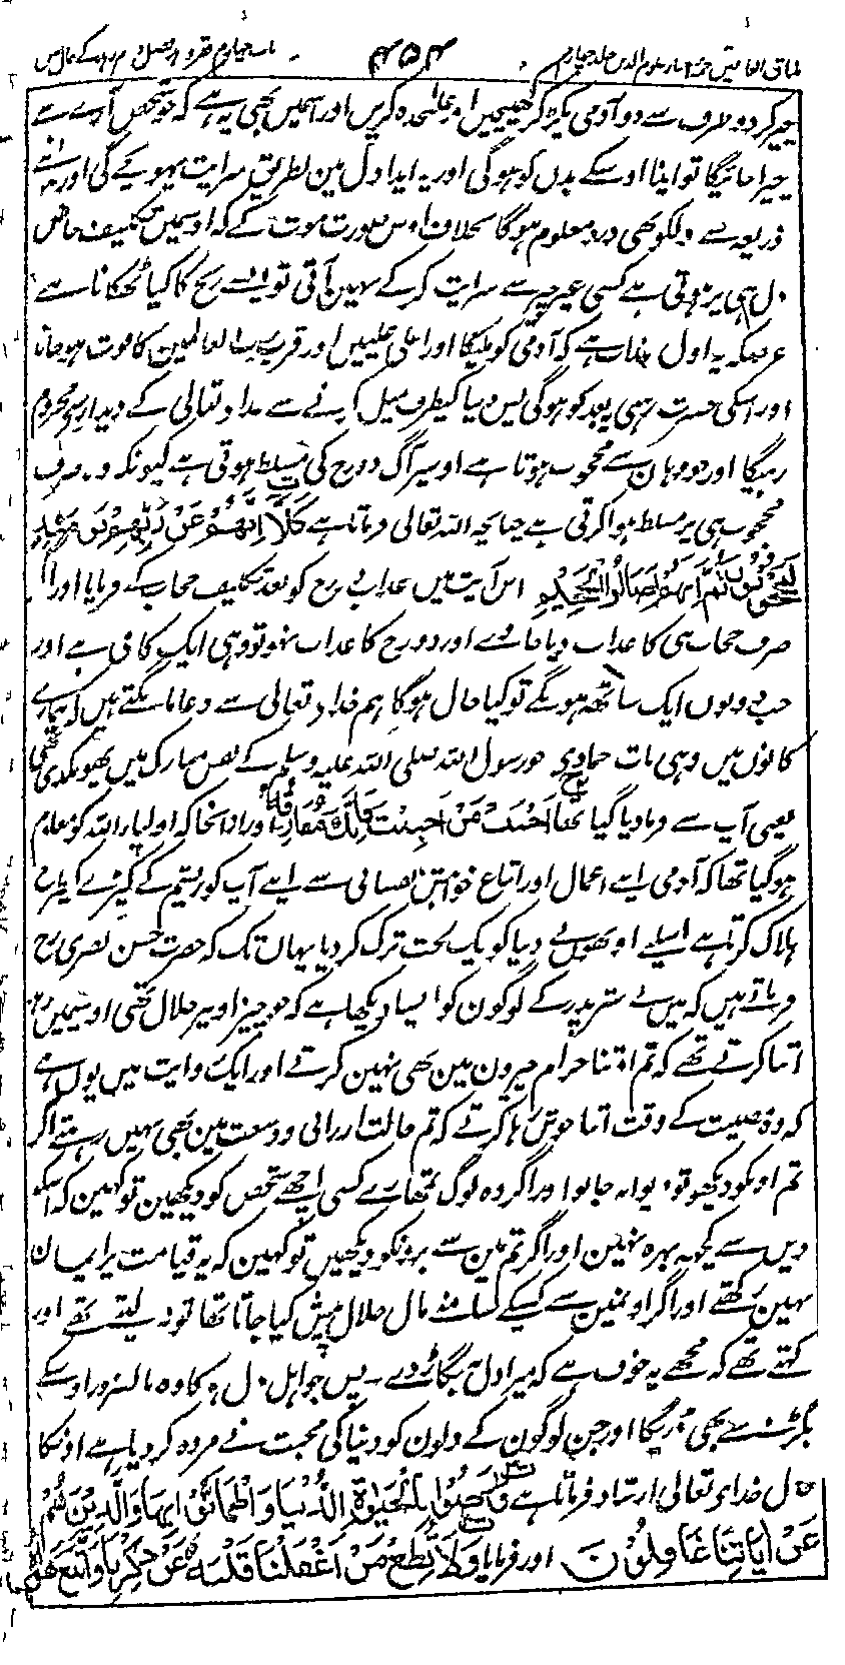 مذاق العارفین ترجمہ احیاء علوم الدین جلد چہارم ۴۵۴ باب چہارم فقر و زہد فصل دوم زہد کے حال میں
چیر کر دو طرف سے دو آدمی پکڑ کر کھینچیں اور علیٰحدہ کریں اور اسمیں بھی یہ ہے کہ جو شخص آرے سے
چیرا جائیگا تو ایذا اوسکے بدن کو ہوگی اور یہ ایذا دل مین بطریق سرایت پہونچے گی اور
ذریعہ سے دلکو بھی درد معلوم ہوگا بخلاف اوس صورت موت کے کہ اوسمیں تکلیف خاص
دل ہی پر ہوتی ہے کسی غیر چیز سے سرایت کر کے نہین آتی تو ایسے رنج کا کیا ٹھکانا ہے
غرضکہ یہ اول عذاب ہے کہ آدمی کو ملیگا اور اعلی علیین اور قرب رب العالمین کا فوت ہوجانا
اور اسکی حسرت رہی یہ بعد کو ہوگی پس دنیا کیطرف میل کرنے سے خداء تعالی کے دیدار سے محروم
رہیگا اور جو وہان سے محجوب ہوتا ہے اوسپر آگ دوزخ کی مسلط ہوتی ہے کیونکہ وہ صرف
محجوب ہی پر مسلط ہوا کرتی ہے چنانچہ اللہ تعالی فرماتا ہے كَلَّا اِنَّهُمْ عَنْ رَبِّهِمْ يَوْمَئِذٍ
لَمَحْجُوبُونَ ثُمَّ اِنَّهُمْ لَصَالُوا الْجَحِيْمِ اس آیت میں عذاب دوزخ کو بعد تکلیف حجاب کے فرمایا اور اگر
صرف حجاب ہی کا عذاب دیا جاوے اور دوزخ کا عذاب نہو تو وہی ایک کافی ہے اور
جب دونوں ایک ساتھ ہونگے تو کیا حال ہوگا ہم خداء تعالی سے دعا مانگتے ہیں کہ ہمارے
کانوں میں وہی بات جمادی جو رسول اللہ صلی اللہ علیہ وسلم کے نفس مبارک میں پھونکدی تھی
یعنی آپ سے فرمادیا گیا تھا اَحْبِبْ مَنْ اَحْبَبْتَ فَاِنَّكَ مُفَارِقُهُ اور ازانجا کہ اولیاء اللہ کو معلوم
ہوگیا تھا کہ آدمی اپنے اعمال اور اتباع خواہش نفسانی سے اپنے آپ کو ریشم کے کیڑے کیطرح
ہلاک کرتا ہے اسیلئے اونھوں نے دنیا کو یک لخت ترک کردیا یہاں تک کہ حضرت حسن بصری رح
فرماتے ہیں کہ میں نے ستر بدر کے لوگون کو ایسا دیکھا ہے کہ جو چیز اونپر حلال تھی اوسمیں زہد
اتنا کرتے تھے کہ تم اوتنا حرام چیزون مین بھی نہین کرتے اور ایک روایت میں یوں ہے
کہ وہ مصیبت کے وقت اتنا خوش رہا کرتے کہ تم حالت ارزانی و وسعت مین بھی نہیں رہتے اگر
تم اونکو دیکھو تو دیوانہ جانو اور اگر وہ لوگ تمھارے کسی اچھے شخص کو دیکھین تو کہین کہ اسکو
دین سے کچھ بہرہ نہین اور اگر تم مین سے برونکو دیکھیں تو کہین کہ یہ قیامت پر ایمان
نہین رکھتے اور اگر اونمین سے کسیکے سامنے مال حلال پیش کیا جاتا تھا تو نہ لیتے تھے اور
کہتے تھے کہ مجھے یہ خوف ہے کہ میرا دل نہ بگاڑ دے۔ پس جو اہل دل ہوگا وہ بالضرور اوسکے
بگڑنے سے بھی ڈریگا اور جن لوگون کے دلون کو دنیا کی محبت نے مردہ کردیا ہے اونکا
حال خداء تعالی ارشاد فرماتا ہے وَرَضُوْا بِالْحَيٰوةِ الدُّنْيَا وَاطْمَاَنُّوْا بِهَا وَالَّذِيْنَ هُمْ
عَنْ اٰيَاتِنَا غَافِلُوْنَ اور فرمایا وَلَا تُطِعْ مَنْ اَغْفَلْنَا قَلْبَهُ عَنْ ذِكْرِنَا وَاتَّبَعَ هَوَاهُ